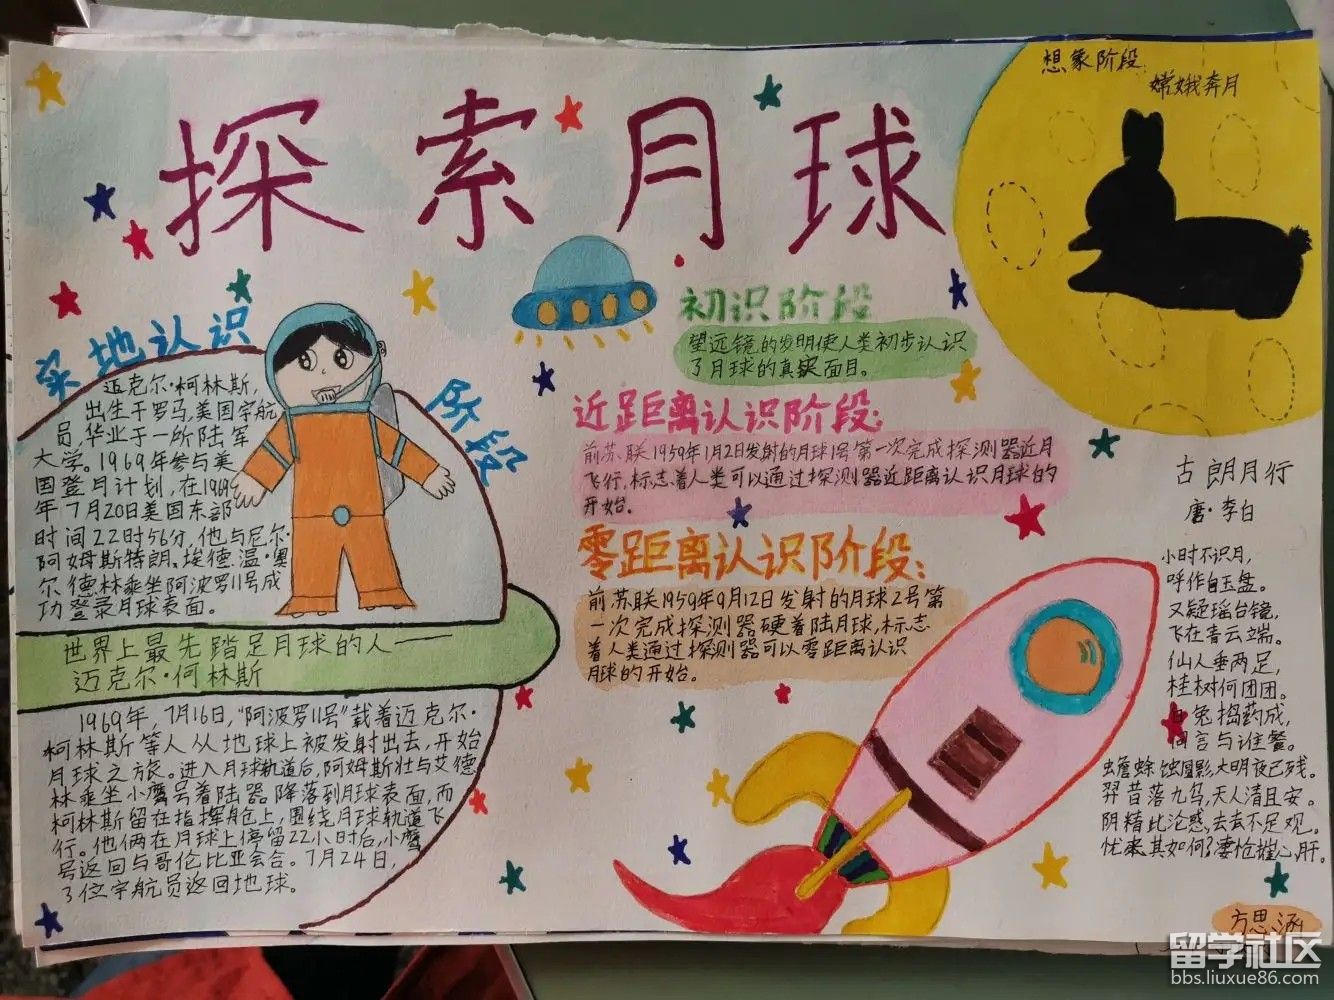 探索月球
想象阶段
嫦娥奔月
实地认识
阶段
迈克尔·柯林斯,
出生于罗马,美国宇航
员,毕业于一所陆军
大学。1969年参与美
国登月计划,在1969
年7月20日美国东部
时间22时56分,他与尼尔·
阿姆斯特朗、埃德温·奥
尔德林乘坐阿波罗11号成
功登录月球表面。
世界上最先踏足月球的人——
迈克尔·何林斯
1969年,7月16日,“阿波罗11号”载着迈克尔·
柯林斯等人从地球上被发射出去,开始
月球之旅。进入月球轨道后,阿姆斯壮与艾德
林乘坐小鹰号着陆器降落到月球表面,而
柯林斯留在指挥舱上,围绕月球轨道飞
行。他俩在月球上停留22小时后,小鹰
号返回与哥伦比亚会合。7月24日,
3位宇航员返回地球。
初识阶段
望远镜的发明使人类初步认识
了月球的真实面目。
近距离认识阶段:
前苏联1959年1月2日发射的月球1号第一次完成探测器近月
飞行,标志着人类可以通过探测器近距离认识月球的
开始。
零距离认识阶段:
前苏联1959年9月12日发射的月球2号第
一次完成探测器硬着陆月球,标志
着人类通过探测器可以零距离认识
月球的开始。
古朗月行
唐·李白
小时不识月,
呼作白玉盘。
又疑瑶台镜,
飞在青云端。
仙人垂两足,
桂树何团团。
白兔捣药成,
问言与谁餐。
蟾蜍蚀圆影,大明夜已残。
羿昔落九乌,天人清且安。
阴精此沦惑,去去不足观。
忧来其如何?凄怆摧心肝。
方思涵
留学社区
bbs.liuxue86.com